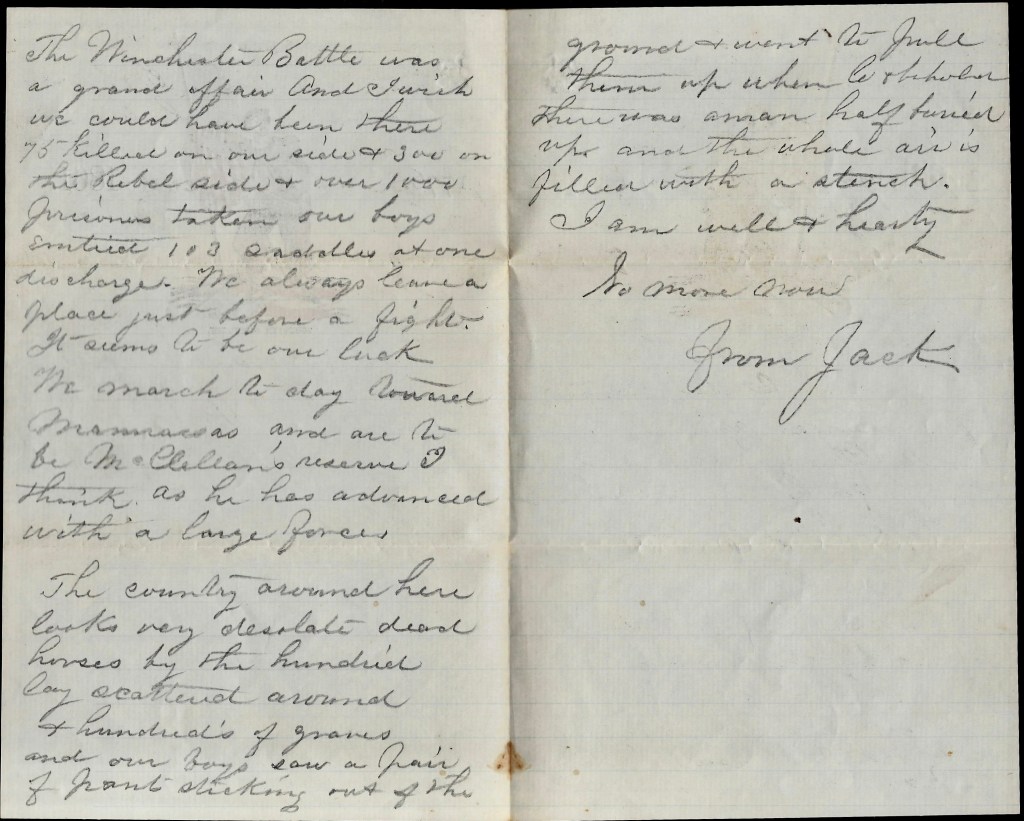 The Winchester Battle was
a grand affair And I wish
we could have been there
75 Killed on our side & 300 on
the Rebel side & over 1000
prisoners taken our boys
emtied 103 saddles at one
discharge. We always leave a
place just before a fight.
It seems to be our luck
We march to day toward
Mannassas and are to
be McClellan's reserve I
think. as he has advanced
with a large force
The country around here
looks very desolate dead
horses by the hundred
lay scattered around
& hundred's of graves
and our boys saw a pair
of pant sticking out of the
ground & went to pull
them up when lo & behold
there was a man half buried
up. and the whole air is
filled with a stench.
I am well & hearty
No more now
From Jack